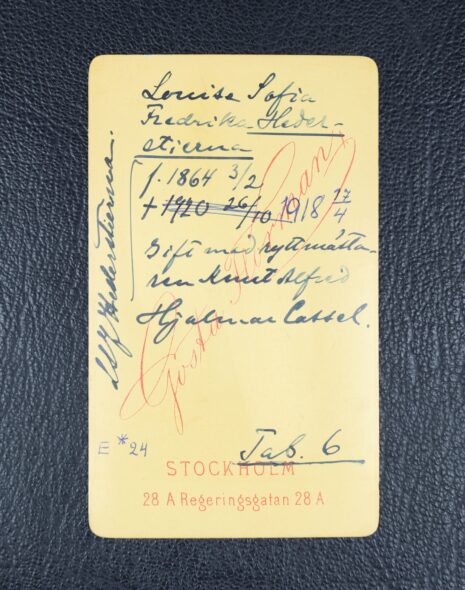 Louise Sofia
Fredrika Heder-
stierna
f. 1864 3/2
+ 1920 26/10 1918 17/4
Gift med ryttmästa-
ren Knut Alfred
Hjalmar Cassel.
Hederstierna.
Gösta Florman
Tab. 6
E * 24
STOCKHOLM
28 A Regeringsgatan 28 A